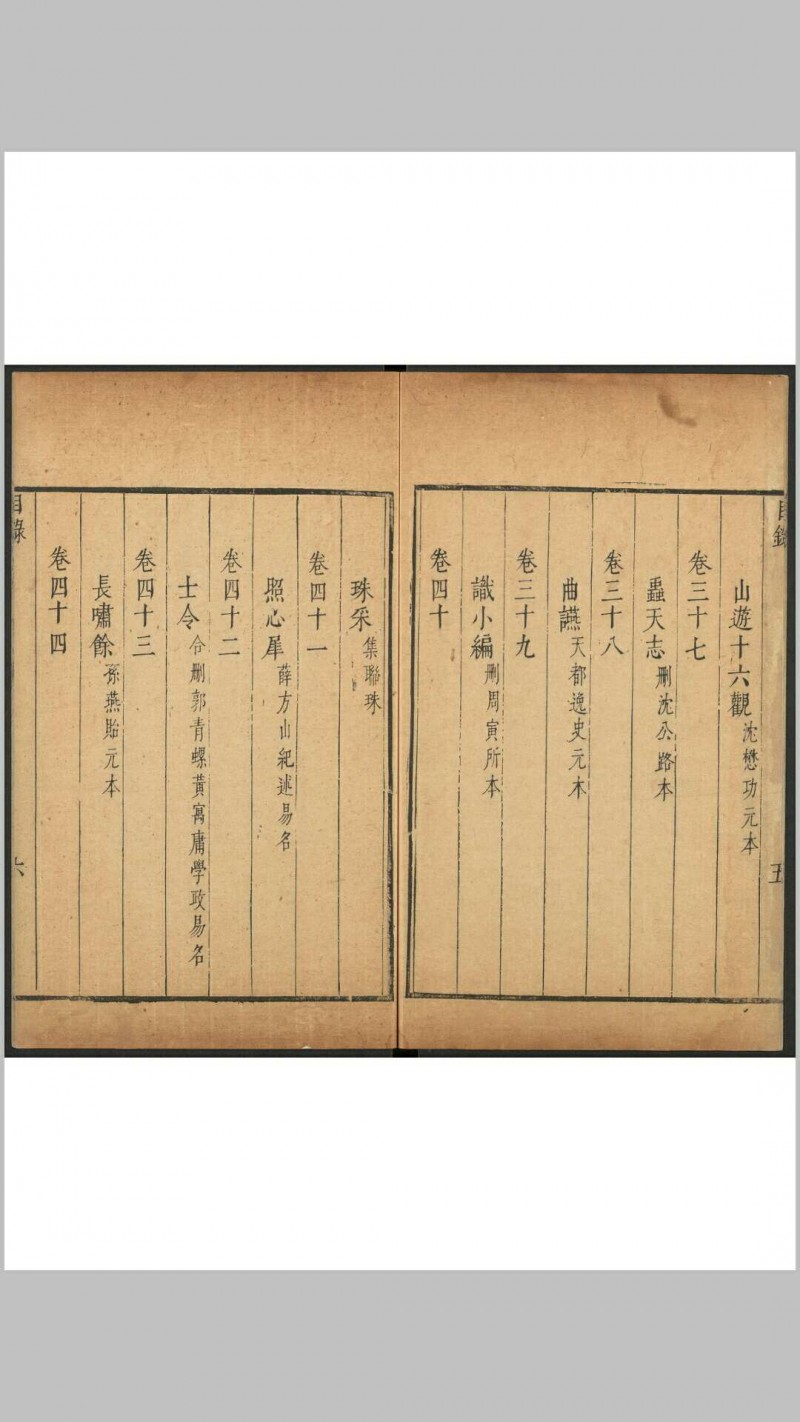 目錄
五
山遊十六觀 沈懋功元本
卷三十七
蟲天志 刪沈公路本
卷三十八
曲讌 天都逸史元木
卷三十九
識小編 刪周寅所本
卷四十
珠采 集聯珠
卷四十一
照心犀 薛方山紀述易名
卷四十二
士令 合刪郭青螺黃寓庸學政易名
卷四十三
長嘯餘 孫燕貽元本
卷四十四
目錄
六